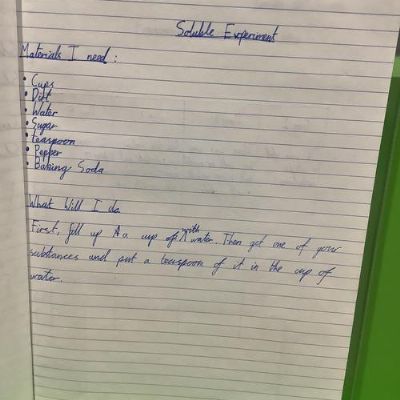 Soluble Experiment
Materials I need:
• Cups
• Dirt
• Water
• Sugar
• teaspoon
• Pepper
• Baking Soda
What Will I do
First, fill up a cup of with water. Then get one of your
substances and put a teaspoon of it in the cup of
water.